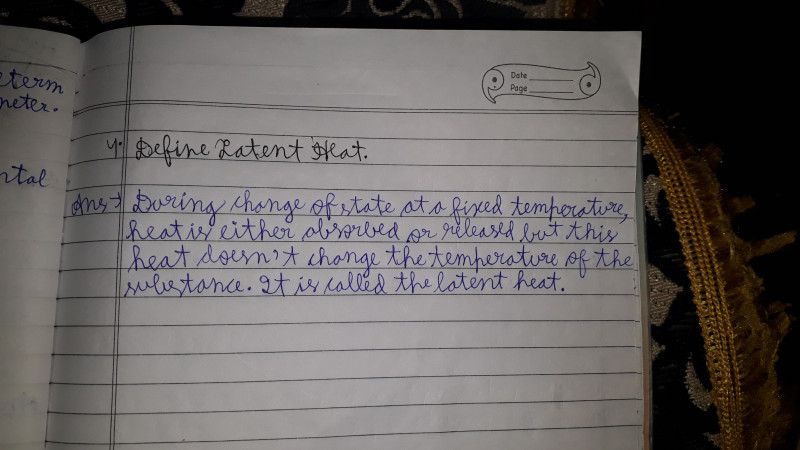 eterm
meter.
ntal
Date
Page
4. Define Latent Heat.
Ans → During change of state at a fixed temperature,
heat is either absorbed or released but this
heat doesn't change the temperature of the
substance. It is called the latent heat.